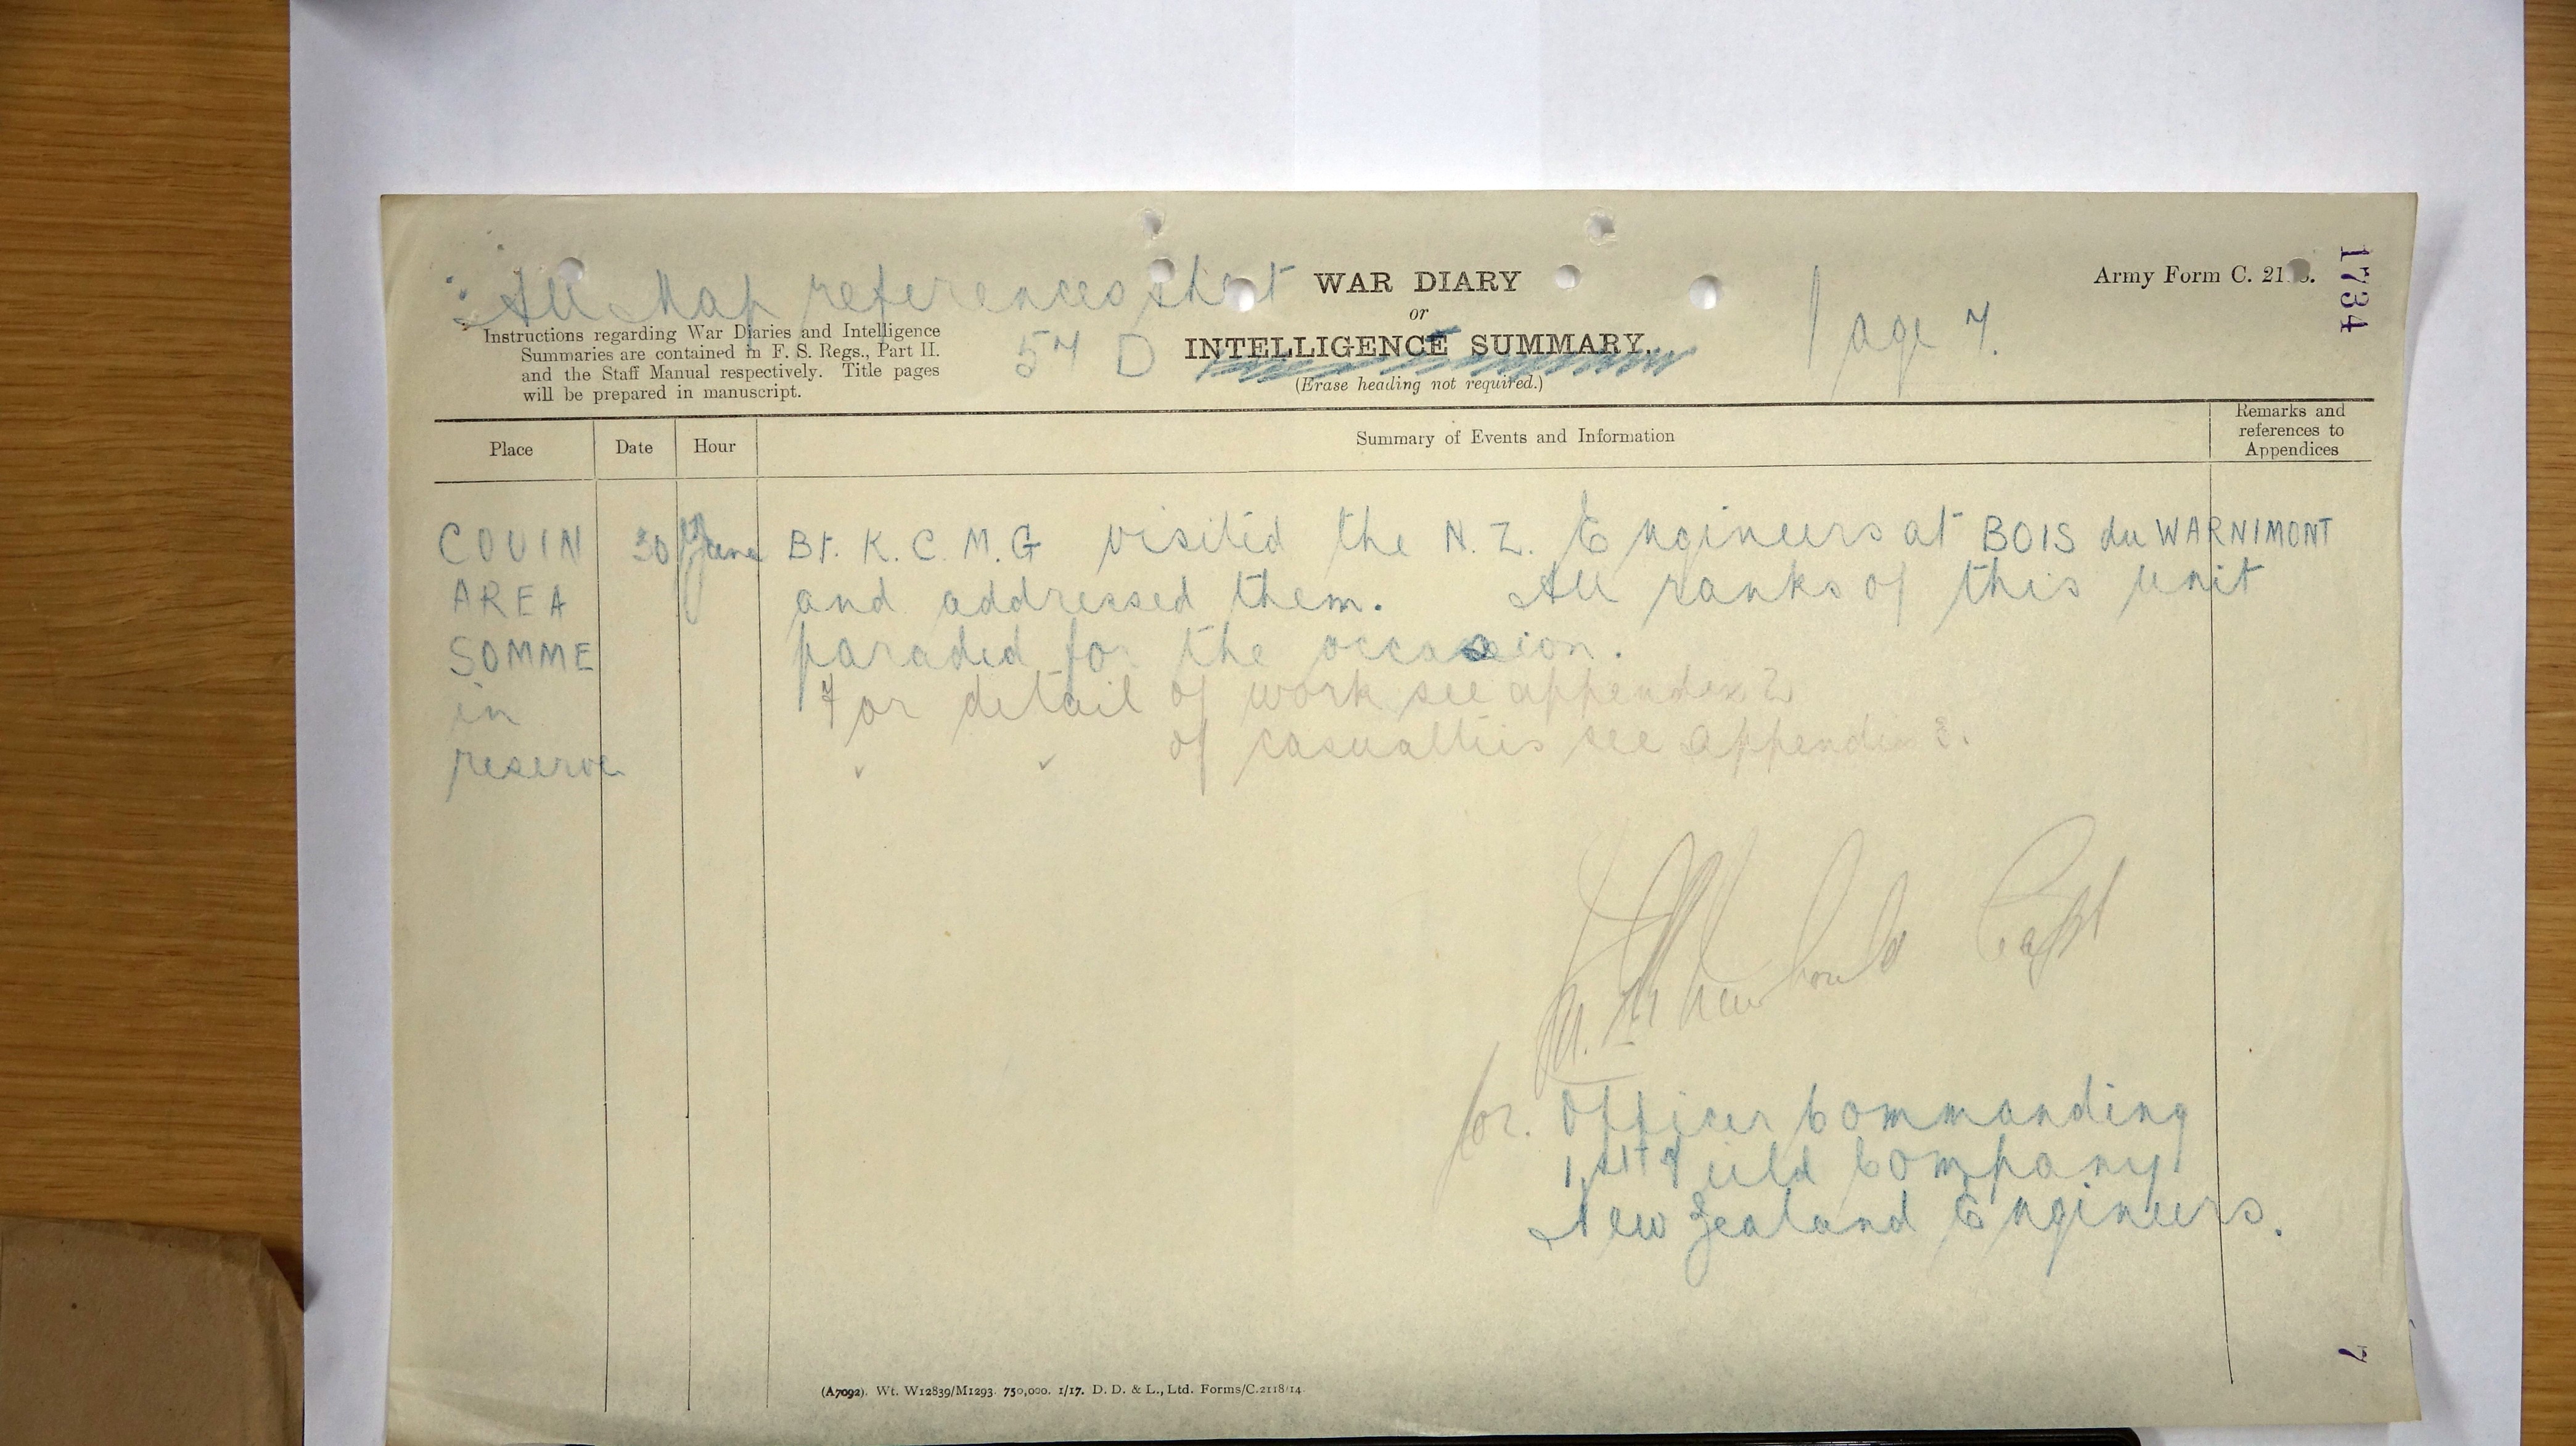 All Map references sheet
57 D
WAR DIARY
or
INTELLIGENCE SUMMARY.
(Erase heading not required.)
Page 7.
Army Form C. 21
1734
Instructions regarding War Diaries and Intelligence
Summaries are contained in F. S. Regs., Part II.
and the Staff Manual respectively. Title pages
will be prepared in manuscript.
Place
Date
Hour
Summary of Events and Information
Remarks and
references to
Appendices
COUIN
AREA
SOMME
in
reserve
30 June
Bt. K. C. M. G visited the N. Z. Engineers at BOIS du WARNIMONT
and addressed them. All ranks of this unit
paraded for the occasion.
For detail of work see appendix 2
" " of casualties see appendix 3.
Newbould Capt
for. Officer Commanding
1st Field Company
New Zealand Engineers.
(A7092). Wt. W12839/M1293. 750,000. 1/17. D. D. & L., Ltd. Forms/C.2118/14
7